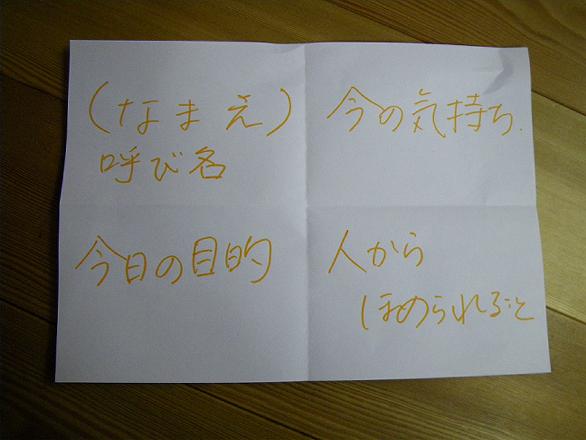 (なまえ)
呼び名
今の気持ち.
今日の目的
人から
ほめられること